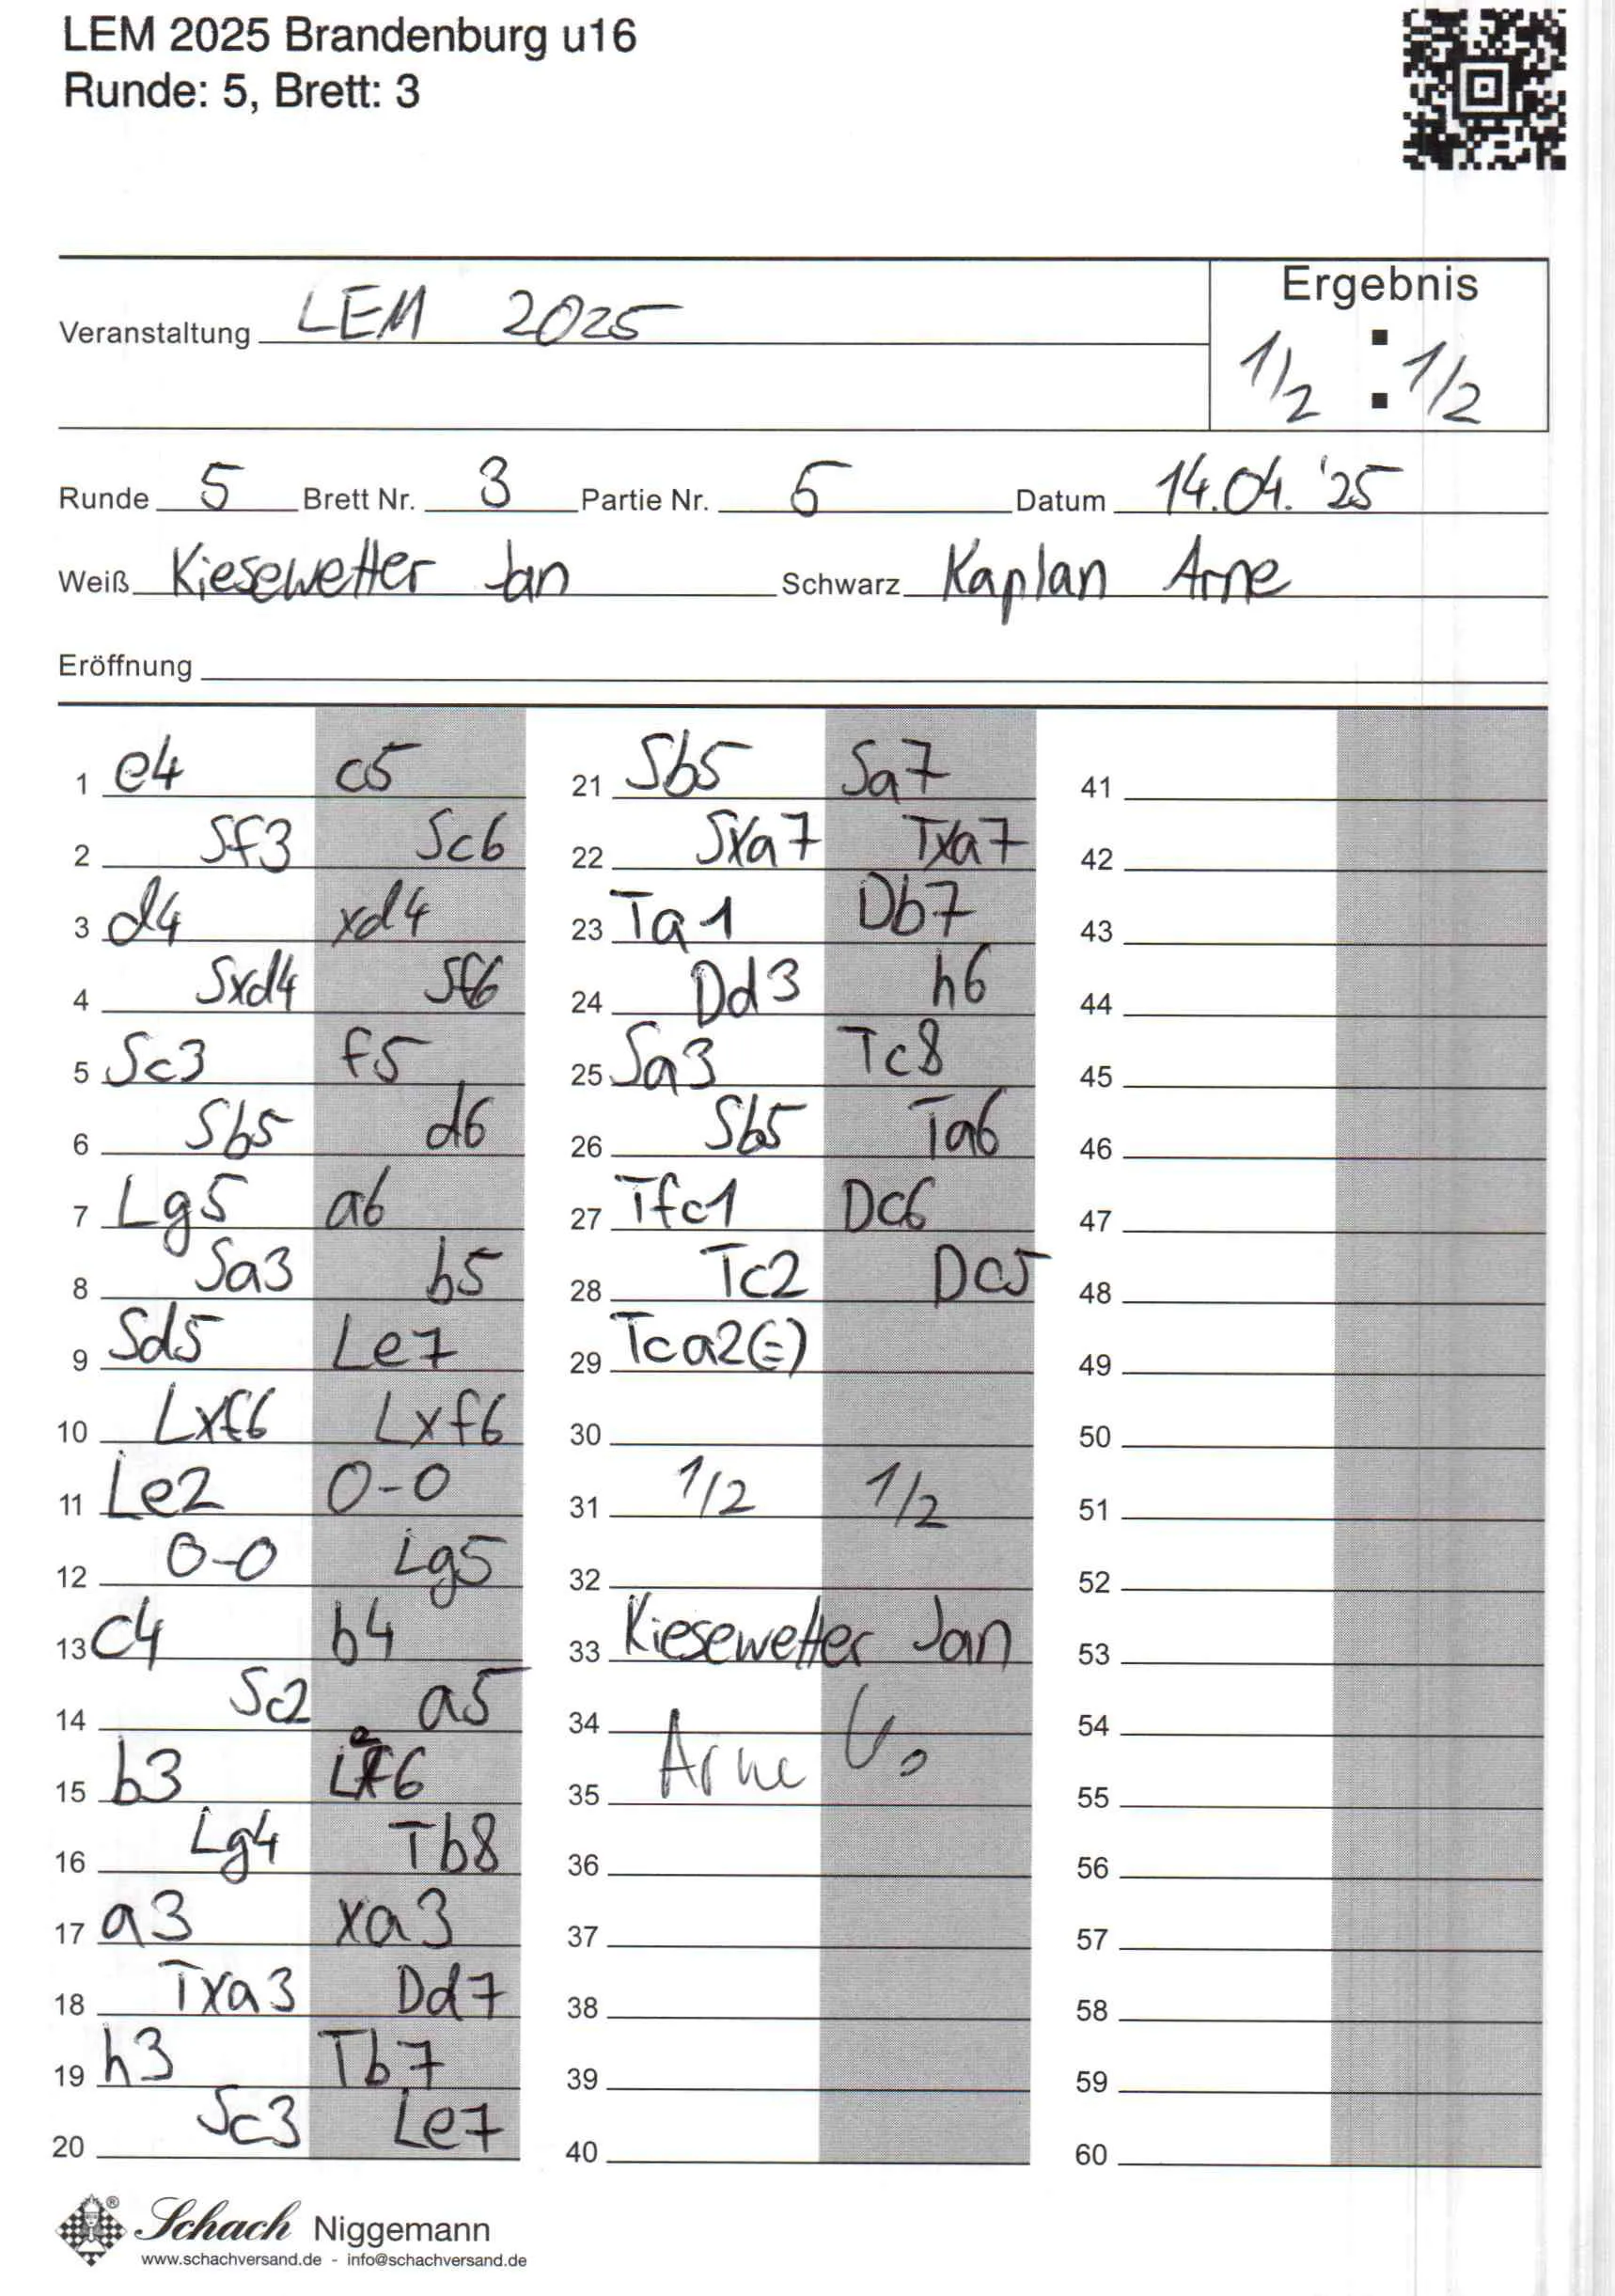 LEM 2025 Brandenburg u16
Runde: 5, Brett: 3
Veranstaltung LEM 2025
Ergebnis
1/2 : 1/2
Runde 5 Brett Nr. 3 Partie Nr. 5 Datum 14.04. '25
Weiß Kiesewetter Jan Schwarz Kaplan Arne
Eröffnung
1 e4 c5
2 Sf3 Sc6
3 d4 xd4
4 Sxd4 Sf6
5 Sc3 f5
6 Sb5 d6
7 Lg5 a6
8 Sa3 b5
9 Sd5 Le7
10 Lxf6 Lxf6
11 Le2 0-0
12 0-0 Lg5
13 c4 b4
14 Sc2 a5
15 b3 Le6
16 Lg4 Tb8
17 a3 xa3
18 Txa3 Dd7
19 h3 Tb7
20 Sc3 Le7
21 Sb5 Sa7
22 Sxa7 Txa7
23 Ta1 Db7
24 Dd3 h6
25 Sa3 Tc8
26 Sb5 Ta6
27 Tfc1 Dc6
28 Tc2 Dc5
29 Tca2(=)
30
31 1/2 1/2
32
33 Kiesewetter Jan
34
35 Arne
36
37
38
39
40
41
42
43
44
45
46
47
48
49
50
51
52
53
54
55
56
57
58
59
60
Schach Niggemann
www.schachversand.de - info@schachversand.de